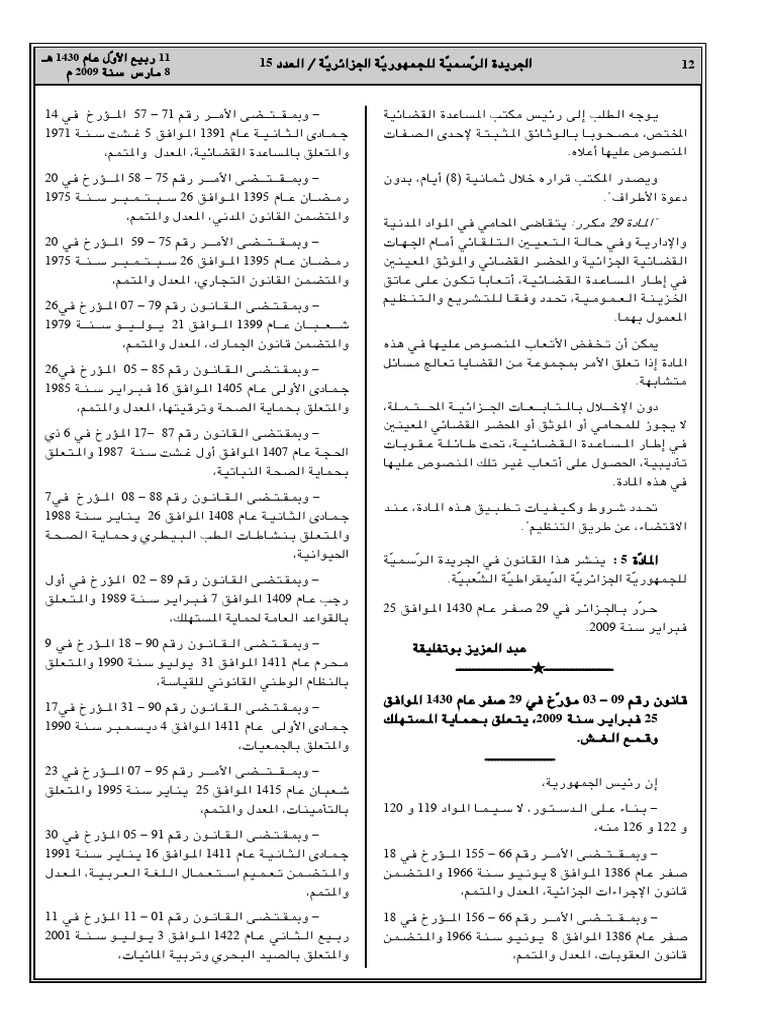 12
الجريدة الرّسميّة للجمهوريّة الجزائريّة / العدد 15
11 ربيع الأوّل عام 1430 هـ
8 مارس سنة 2009 م
يوجه الطلب إلى رئيس مكتب المساعدة القضائية
المختص، مصحوبا بالوثائق المثبتة لإحدى الصفات
المنصوص عليها أعلاه.
ويصدر المكتب قراره خلال ثمانية (8) أيام، بدون
دعوة الأطراف".
"المادة 29 مكرر: يتقاضى المحامي في المواد المدنية
والإدارية وفي حالة التعيين التلقائي أمام الجهات
القضائية الجزائية والمحضر القضائي والموثق المعينين
في إطار المساعدة القضائية، أتعابا تكون على عاتق
الخزينة العمومية، تحدد وفقا للتشريع والتنظيم
المعمول بهما.
يمكن أن تخفض الأتعاب المنصوص عليها في هذه
المادة إذا تعلق الأمر بمجموعة من القضايا تعالج مسائل
متشابهة.
دون الإخلال بالمتابعات الجزائية المحتملة،
لا يجوز للمحامي أو الموثق أو المحضر القضائي المعينين
في إطار المساعدة القضائية، تحت طائلة عقوبات
تأديبية، الحصول على أتعاب غير تلك المنصوص عليها
في هذه المادة.
تحدد شروط وكيفيات تطبيق هذه المادة، عند
الاقتضاء، عن طريق التنظيم".
المادّة 5 : ينشر هذا القانون في الجريدة الرّسميّة
للجمهوريّة الجزائريّة الدّيمقراطيّة الشّعبيّة.
حرّر بالجزائر في 29 صفر عام 1430 الموافق 25
فبراير سنة 2009.
عبد العزيز بوتفليقة
قانون رقم 09 – 03 مؤرّخ في 29 صفر عام 1430 الموافق
25 فبراير سنة 2009، يتعلق بحماية المستهلك
وقمع الغش.
إن رئيس الجمهورية،
– بناء على الدستور، لا سيما المواد 119 و 120
و 122 و 126 منه،
– وبمقتضى الأمر رقم 66 – 155 المؤرخ في 18
صفر عام 1386 الموافق 8 يونيو سنة 1966 والمتضمن
قانون الإجراءات الجزائية، المعدل والمتمم،
– وبمقتضى الأمر رقم 66 – 156 المؤرخ في 18
صفر عام 1386 الموافق 8 يونيو سنة 1966 والمتضمن
قانون العقوبات، المعدل والمتمم،
– وبمقتضى الأمر رقم 71 – 57 المؤرخ في 14
جمادى الثانية عام 1391 الموافق 5 غشت سنة 1971
والمتعلق بالمساعدة القضائية، المعدل والمتمم،
– وبمقتضى الأمر رقم 75 – 58 المؤرخ في 20
رمضان عام 1395 الموافق 26 سبتمبر سنة 1975
والمتضمن القانون المدني، المعدل والمتمم،
– وبمقتضى الأمر رقم 75 – 59 المؤرخ في 20
رمضان عام 1395 الموافق 26 سبتمبر سنة 1975
والمتضمن القانون التجاري، المعدل والمتمم،
– وبمقتضى القانون رقم 79 – 07 المؤرخ في26
شعبان عام 1399 الموافق 21 يوليو سنة 1979
والمتضمن قانون الجمارك، المعدل والمتمم،
– وبمقتضى القانون رقم 85 – 05 المؤرخ في26
جمادى الأولى عام 1405 الموافق 16 فبراير سنة 1985
والمتعلق بحماية الصحة وترقيتها، المعدل والمتمم،
– وبمقتضى القانون رقم 87 –17 المؤرخ في 6 ذي
الحجة عام 1407 الموافق أول غشت سنة 1987 والمتعلق
بحماية الصحة النباتية،
– وبمقتضى القانون رقم 88 – 08 المؤرخ في7
جمادى الثانية عام 1408 الموافق 26 يناير سنة 1988
والمتعلق بنشاطات الطب البيطري وحماية الصحة
الحيوانية،
– وبمقتضى القانون رقم 89 – 02 المؤرخ في أول
رجب عام 1409 الموافق 7 فبراير سنة 1989 والمتعلق
بالقواعد العامة لحماية المستهلك،
– وبمقتضى القانون رقم 90 – 18 المؤرخ في 9
محرم عام 1411 الموافق 31 يوليو سنة 1990 والمتعلق
بالنظام الوطني القانوني للقياسة،
– وبمقتضى القانون رقم 90 – 31 المؤرخ في17
جمادى الأولى عام 1411 الموافق 4 ديسمبر سنة 1990
والمتعلق بالجمعيات،
– وبمقتضى الأمر رقم 95 – 07 المؤرخ في 23
شعبان عام 1415 الموافق 25 يناير سنة 1995 والمتعلق
بالتأمينات، المعدل والمتمم،
– وبمقتضى القانون رقم 91 – 05 المؤرخ في 30
جمادى الثانية عام 1411 الموافق 16 يناير سنة 1991
والمتضمن تعميم استعمال اللغة العربية، المعدل
والمتمم،
– وبمقتضى القانون رقم 01 – 11 المؤرخ في 11
ربيع الثاني عام 1422 الموافق 3 يوليو سنة 2001
والمتعلق بالصيد البحري وتربية المائيات،